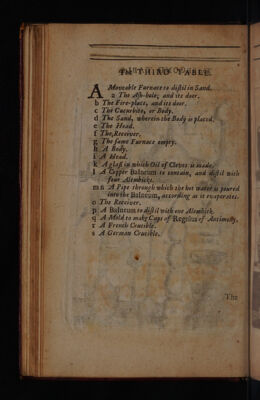 The THIRD TABLE.
A Moveable Furnace to distil in Sand.
a The Ash-hole, and its door.
b The Fire-place, and its door.
c The Cucurbite, or Body.
d The Sand, wherein the Body is placed.
e The Head.
f The Receiver.
g The same Furnace empty.
h A Body.
i A Head.
k A glass in which Oil of Cloves is made.
l A Copper Balneum to contain, and distil with
four Alembicks.
m n A Pipe through which the hot water is poured
into the Balneum, according as it evaporates.
o The Receiver.
p A Balneum to distil with one Alembick.
q A Mold to make Cups of Regulus of Antimony.
r A French Crucible.
s A German Crucible.
The